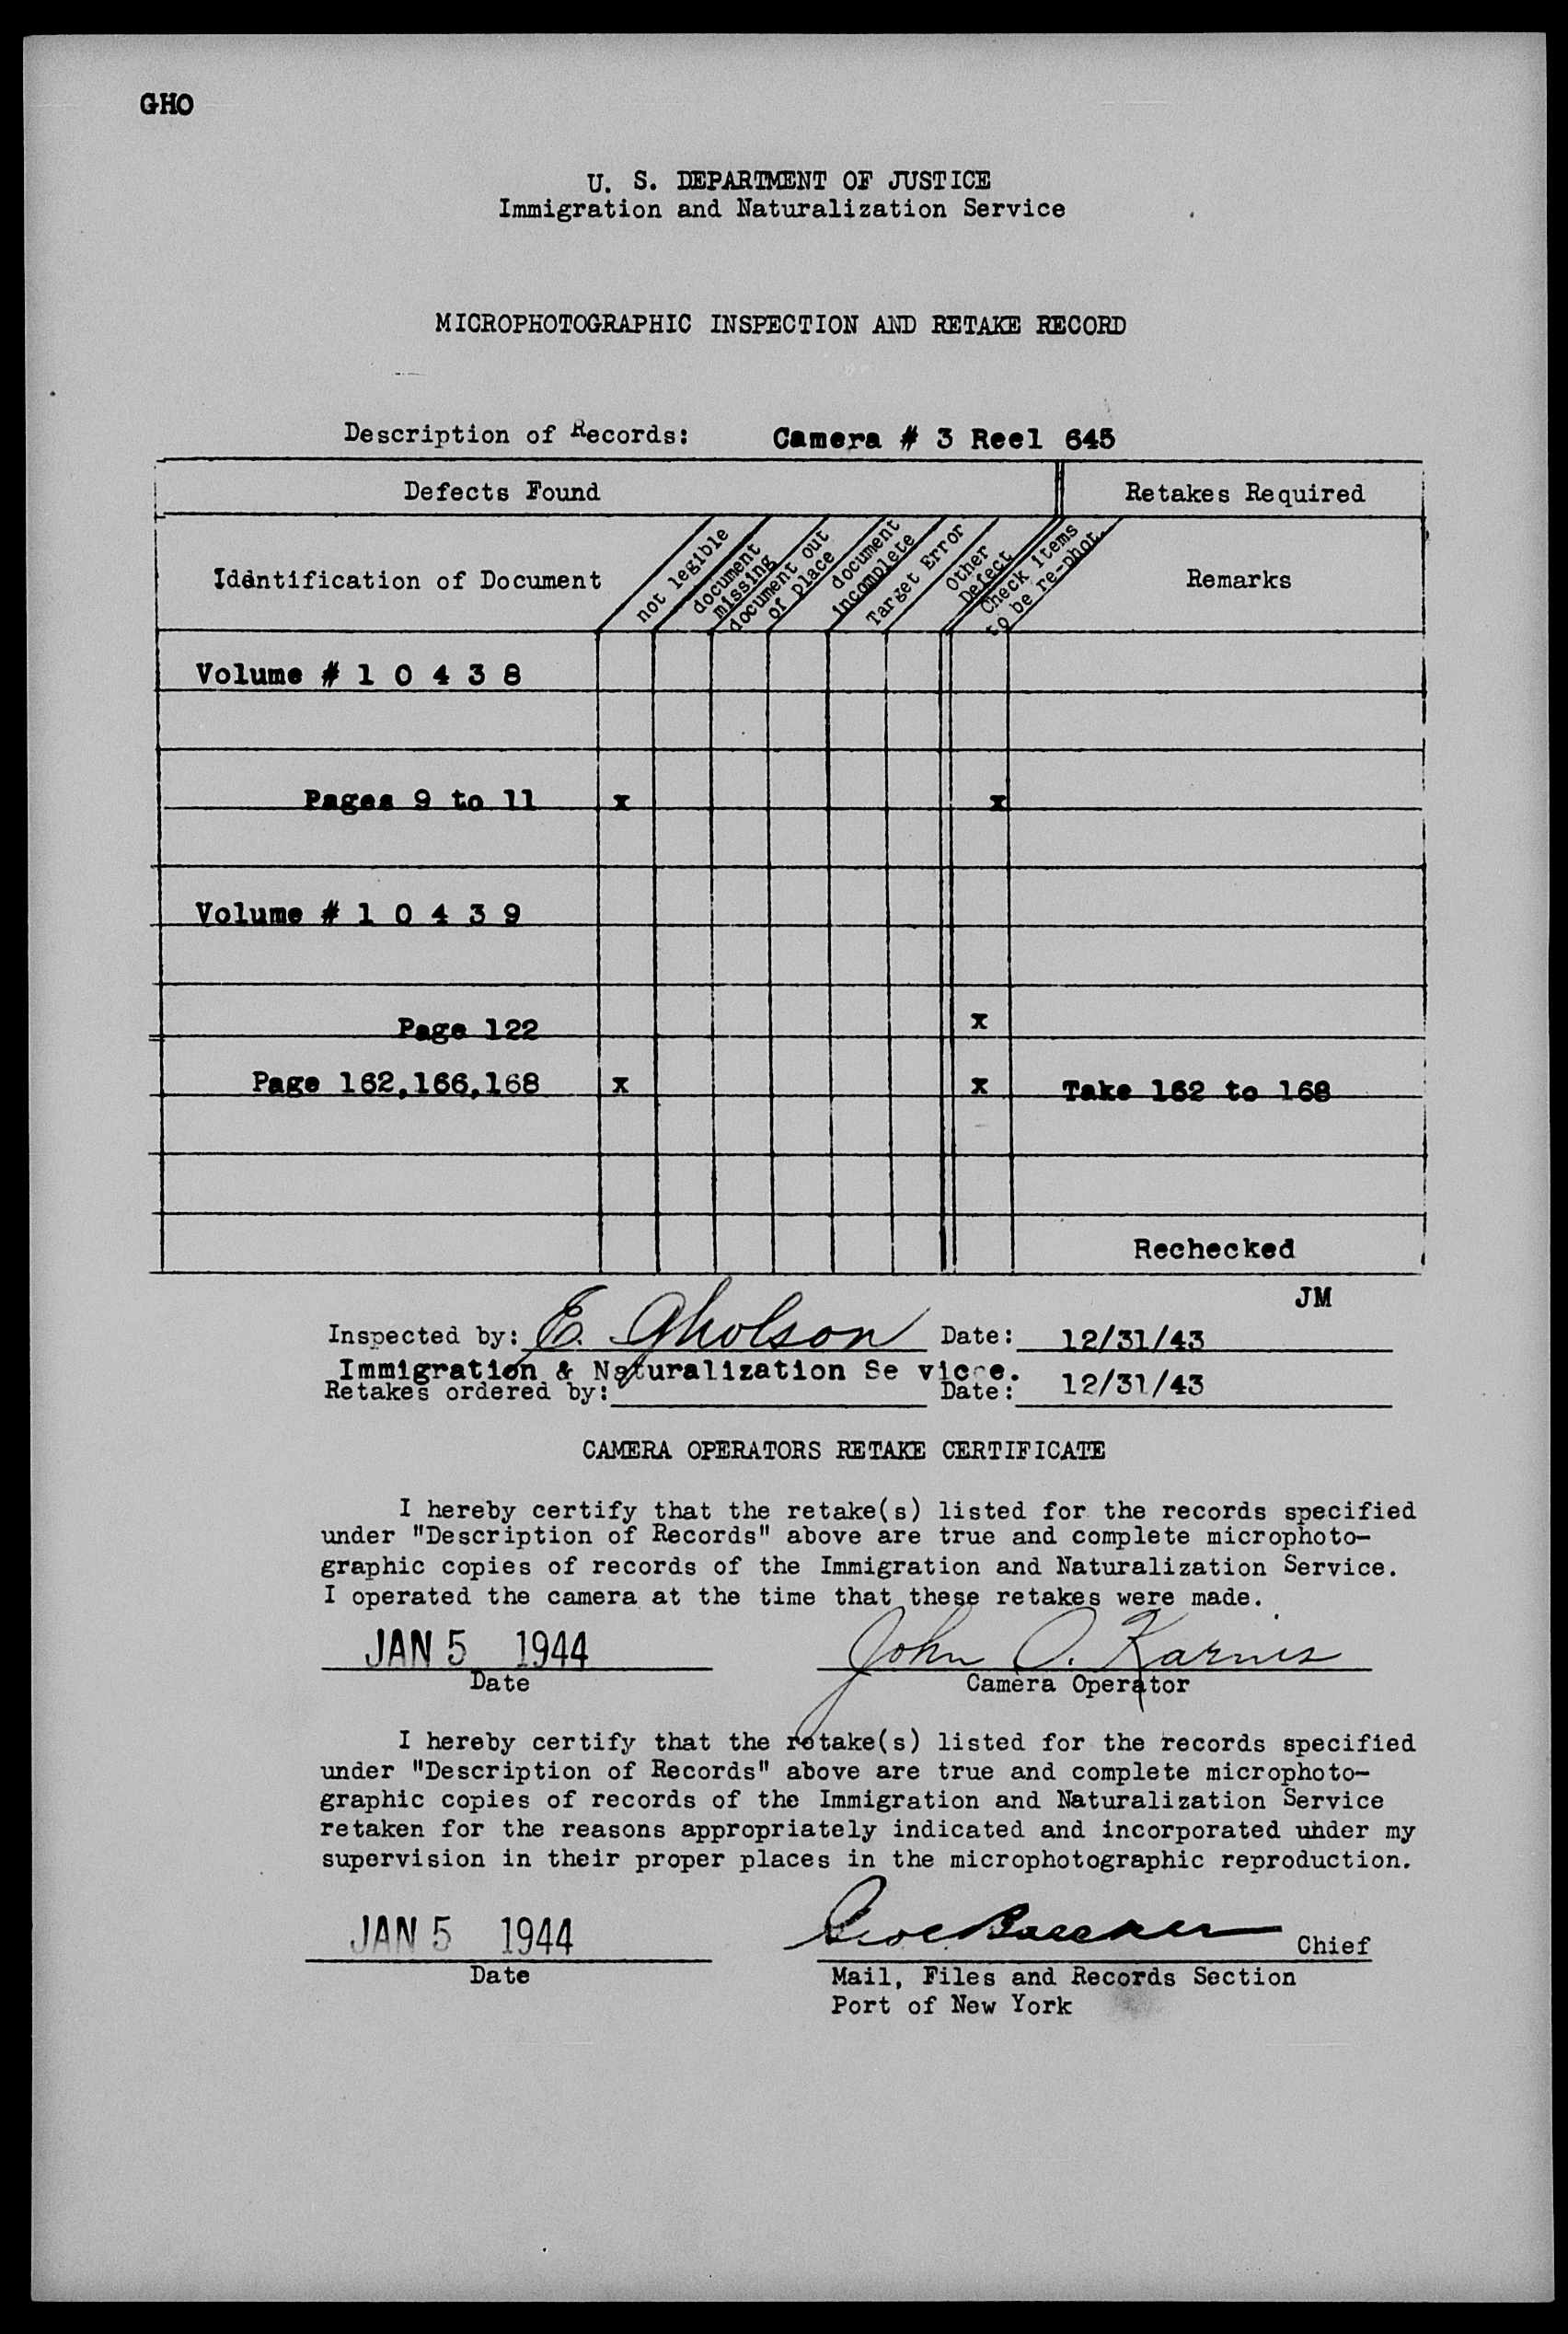 GHO
U. S. DEPARTMENT OF JUSTICE
Immigration and Naturalization Service
MICROPHOTOGRAPHIC INSPECTION AND RETAKE RECORD
Description of Records: Camera # 3 Reel 645
Defects Found Retakes Required
Identification of Document not legible document missing document out of place document incomplete Target Error Other Defect Check items to be re-phot. Remarks
Volume # 1 0 4 3 8
Pages 9 to 11 x x
Volume # 1 0 4 3 9
Page 122 x
Page 162,166,168 x x Take 162 to 168
Rechecked
JM
Inspected by: E. Gholson Date: 12/31/43
Immigration & Naturalization Se vice.
Retakes ordered by: Date: 12/31/43
CAMERA OPERATORS RETAKE CERTIFICATE
I hereby certify that the retake(s) listed for the records specified
under "Description of Records" above are true and complete microphoto-
graphic copies of records of the Immigration and Naturalization Service.
I operated the camera at the time that these retakes were made.
JAN 5 1944 John O. Karnis
Date Camera Operator
I hereby certify that the retake(s) listed for the records specified
under "Description of Records" above are true and complete microphoto-
graphic copies of records of the Immigration and Naturalization Service
retaken for the reasons appropriately indicated and incorporated under my
supervision in their proper places in the microphotographic reproduction.
JAN 5 1944 Chief
Date Mail, Files and Records Section
Port of New York